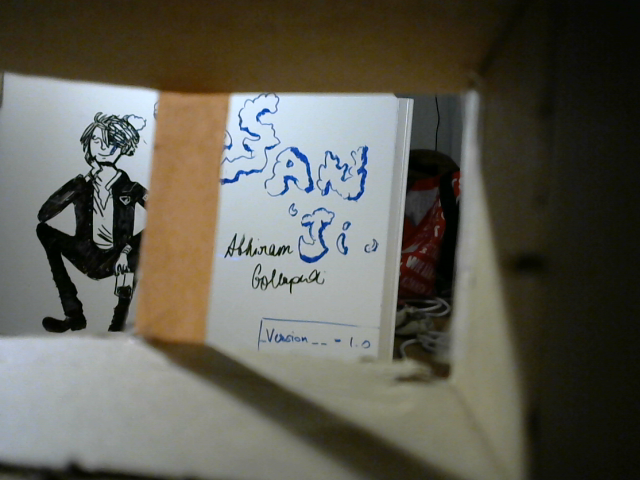 SAN
Ji
Abhiram
Gollapudi
Version__ = 1.0